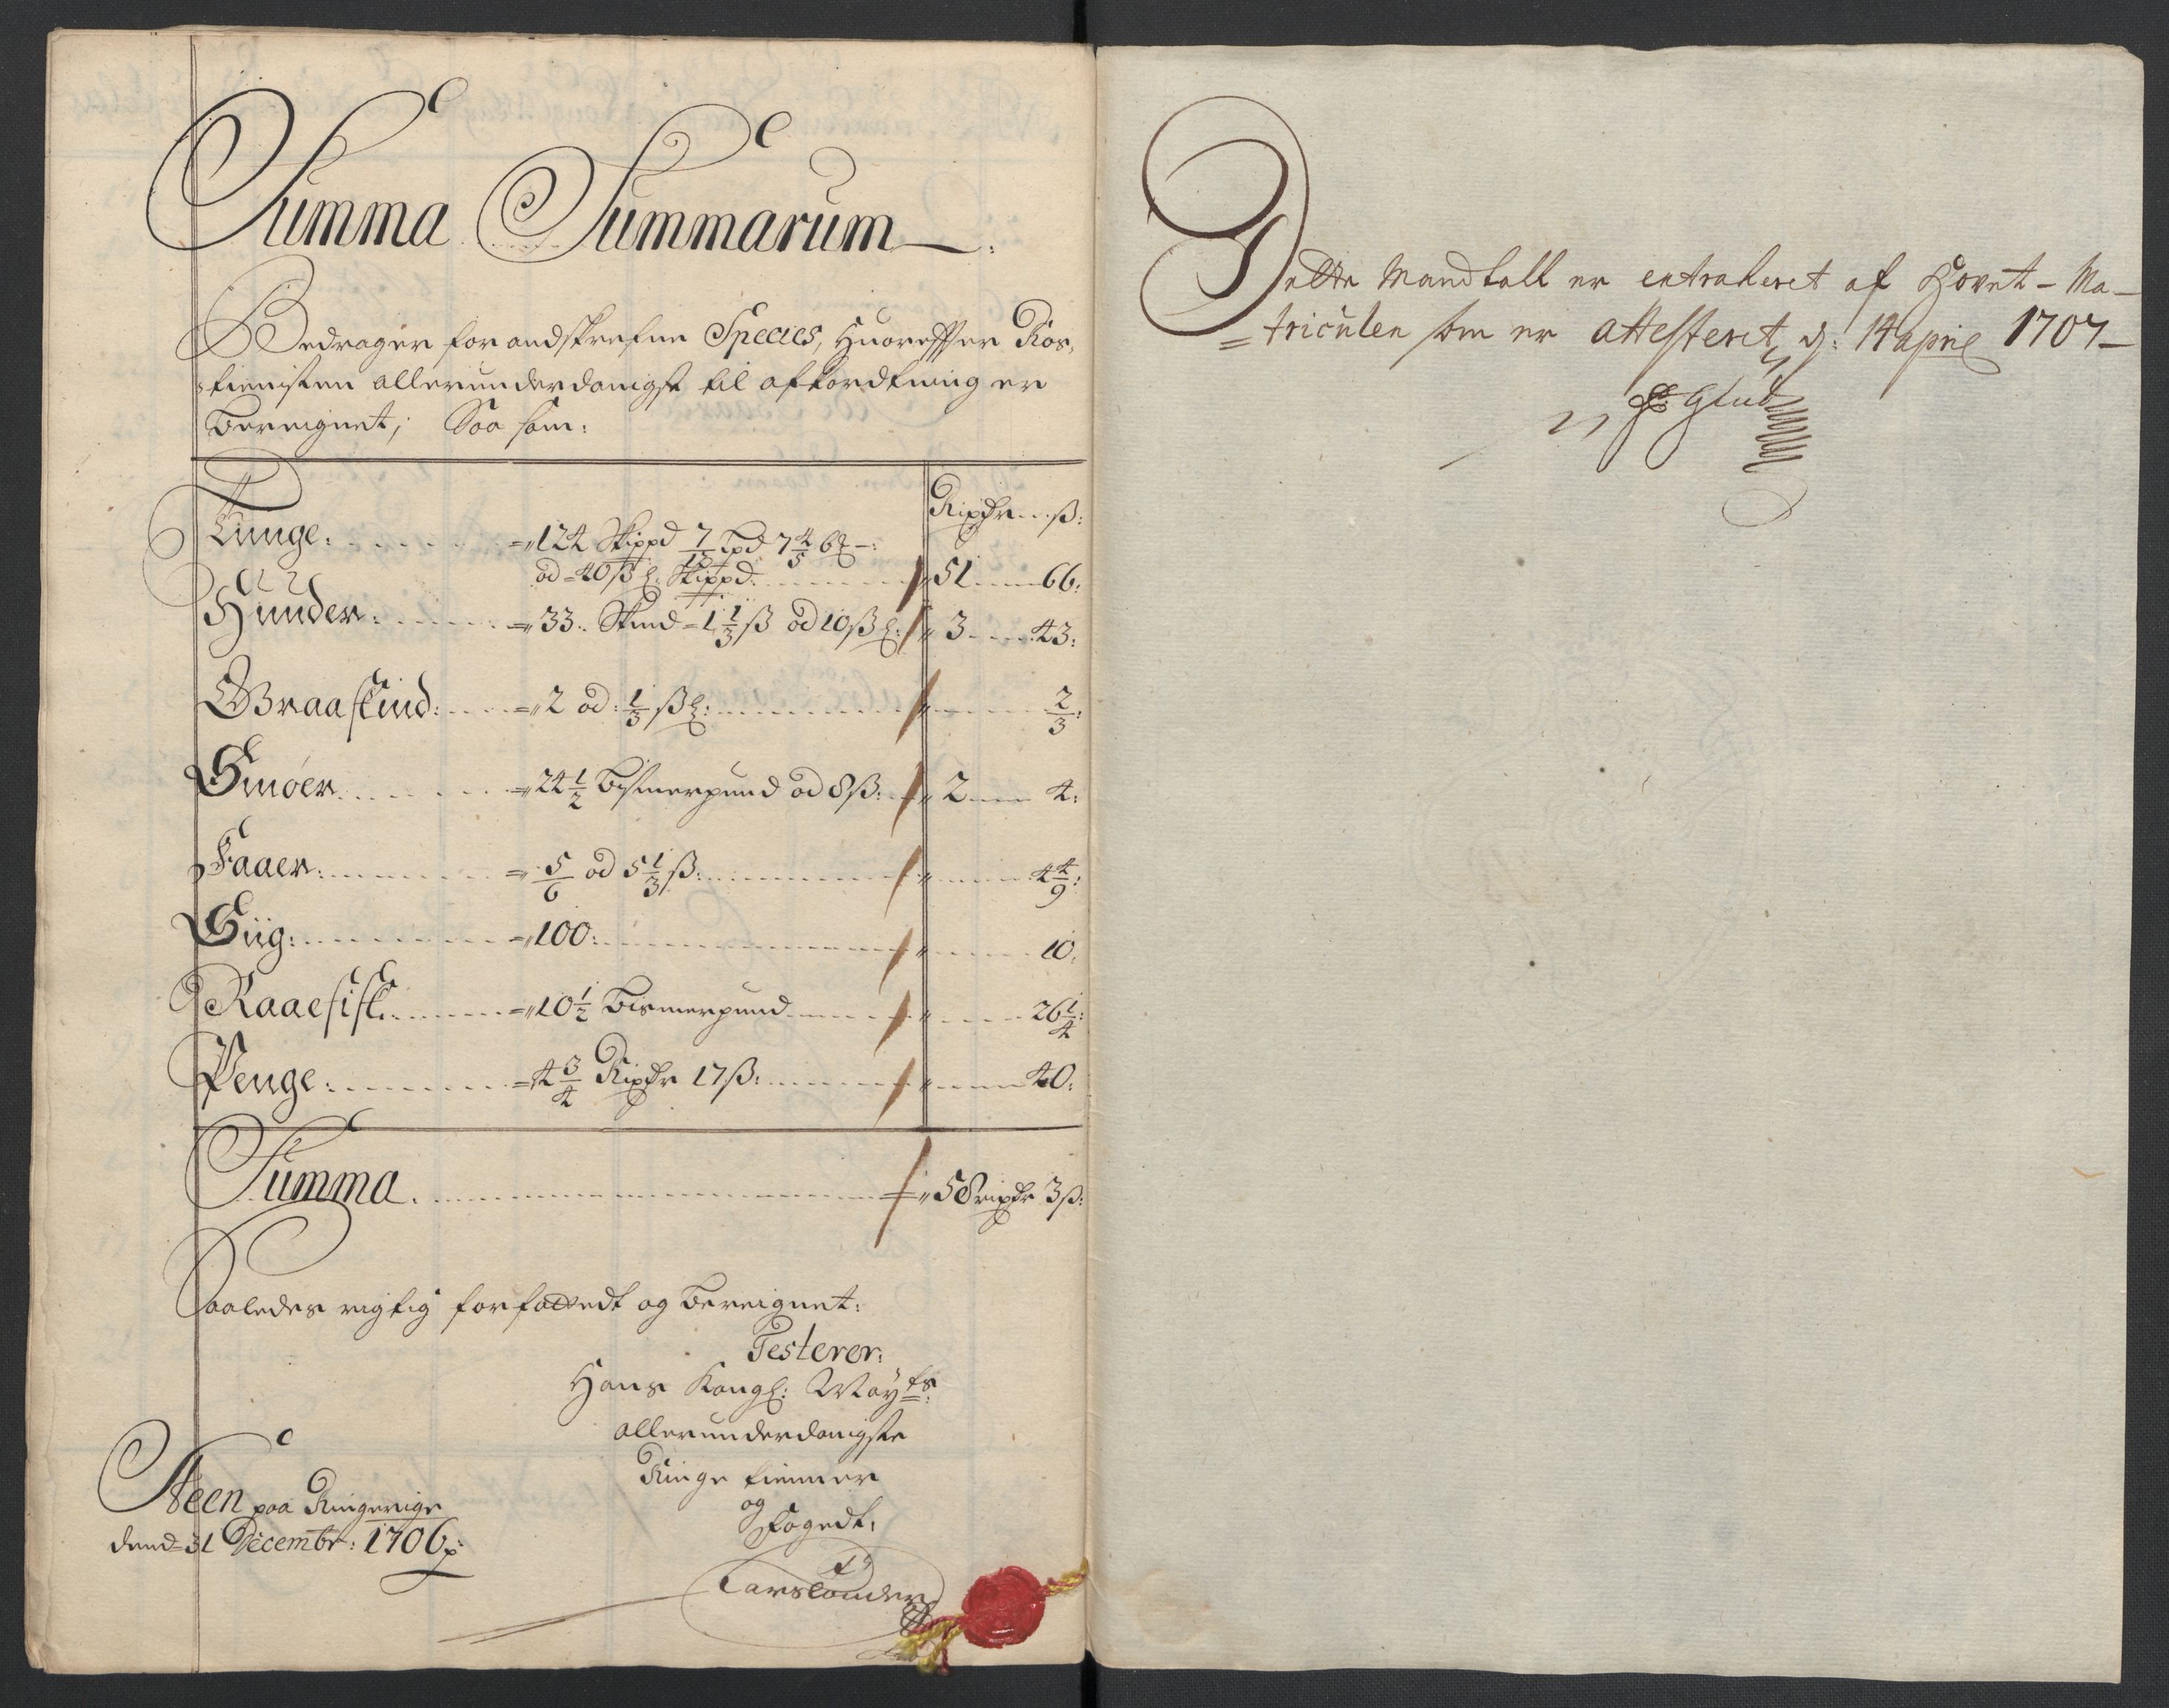 Summa Summarum
Bedrager forandskrefne Species, Huorefter Ros,
tienisten allerunderdanigst til afkordtning er
Bereignet; Saa som:
Rixdr ß:
Tunge: 124 Skippd 7/15 Lpd 7 4/5
ad 40 ß Skippd 51 66:
Hunder: 33. Skind 1 1/3 ß ad 10 ß 3 43:
Graaskind: 2 ad: 1/3 ß 2/3:
Smöer 24 1/2 Bismerpund ad 8 ß: 2 4:
Faaer: 5/6 ad 5 1/3 ß: 4 4/9:
Siig: 100: 10:
Raaefisk: 10 1/2 Bismerpund 26 1/4:
Penge: 4 3/4 Rixdr 17 ß: 40:
Summa 58 rixdr 3 ß:
Saaledes rigtig forfattedt og Bereignet:
Testerer:
Hans Kongl: Mayts:
allerunderdanigste
Ringe tienner
og
Fogedt:
Steen paa Ringerige
dend 31 Decembr: 1706
Dette Mandtall er extraheret af Hovet-Ma-
triculen som er attesteret d: 14 april 1707
Glud